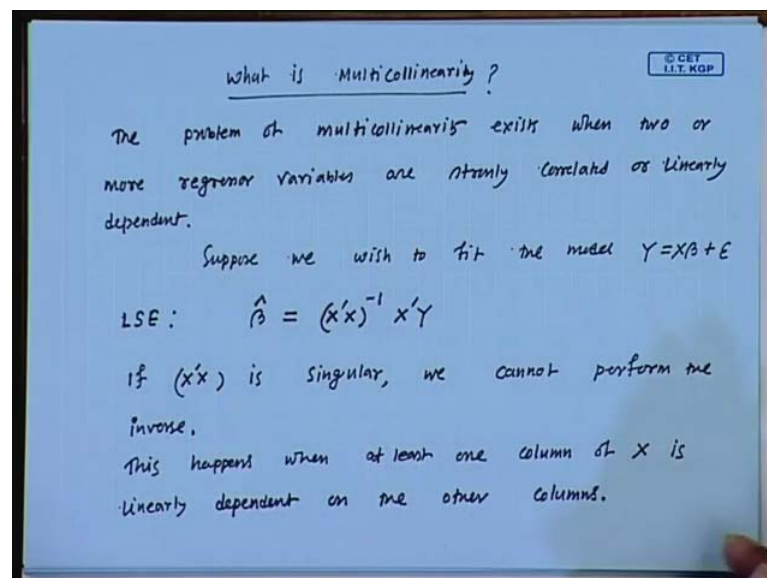 What is Multicollinearity?
© CET
I.I.T. KGP
The problem of multicollinearity exists when two or
more regressor variables are strongly correlated or linearly
dependent.
Suppose we wish to fit the model Y=Xβ+ε
LSE: β̂ = (X'X)⁻¹ X'Y
If (X'X) is singular, we cannot perform the
inverse.
This happens when at least one column of X is
linearly dependent on the other columns.